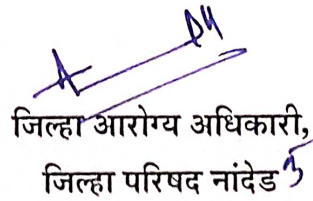 जिल्हा आरोग्य अधिकारी,
जिल्हा परिषद नांदेड